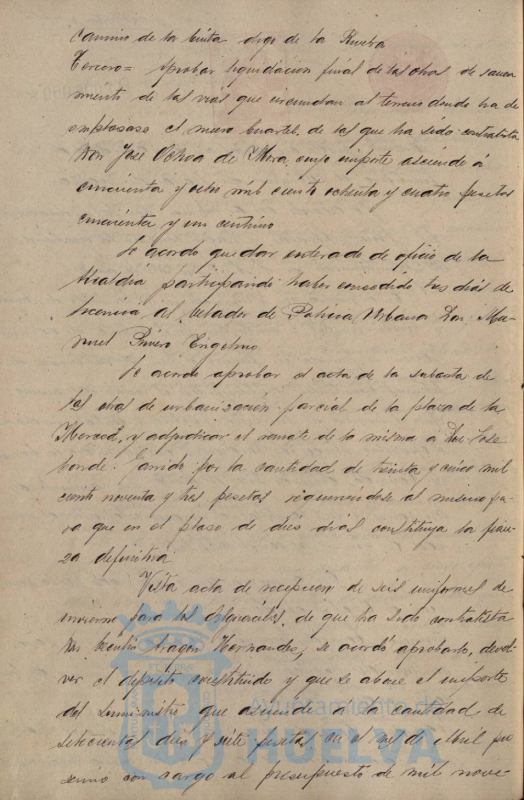 camino de la Cinta digo de la Rivera
Tercero = aprobar liquidación final de las obras de sanea
miento de las vías que circundan al terreno donde ha de
emplazarse el nuevo Cuartel, de las que ha sido contratista
Don José Ochoa de Mora, cuyo importe asciende á
cincuenta y ocho mil ciento ochenta y cuatro pesetas
cincuenta y un centimo
Se acordo quedar enterado de oficio de la
Alcaldia participando haber concedido tres dias de
licencia al Celador de Policia Urbana Don Ma-
nuel Rivero
Se acordo aprobar el acta de la subasta de
las obras de urbanización parcial de la plaza de la
Merced, y adjudicar el remate de la misma a Don José
Conde Garrido por la cantidad de treinta y cinco mil
ciento noventa y tres pesetas requiriendose al mismo pa-
ra que en el plazo de diez dias constituya la fian
za definitiva
Vista acta de recepcion de seis uniformes de
invierno para los Alguaciles, de que ha sido contratista
Don Aragon Hernandez, se acordó aprobarlo, devol
ver el deposito constituido y que se abone el importe
del suministro que asciende a la cantidad de
setecientas diez y siete pesetas en el mes de Abril pro
ximo con cargo al presupuesto de mil nove-
Ayuntamiento de
HUELVA